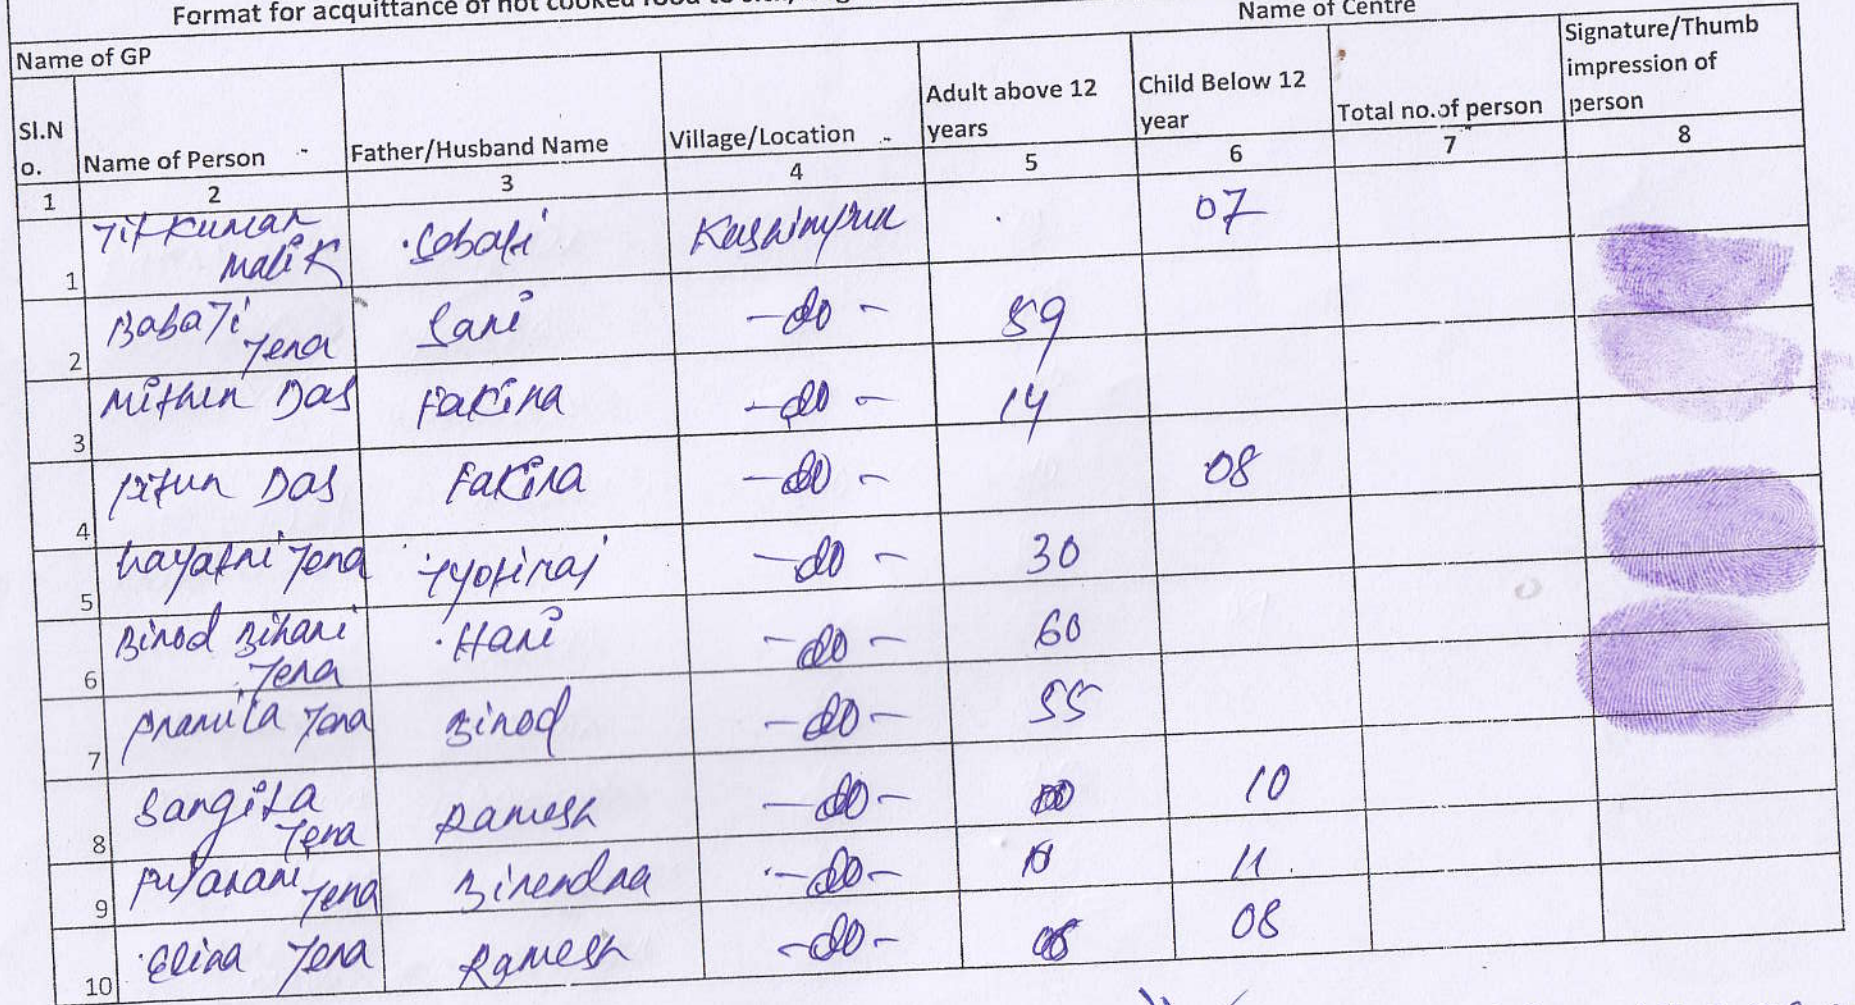 Format for acquittance of hot cooked food to
Name of Centre
Name of GP
Sl.N o. Name of Person Father/Husband Name Village/Location Adult above 12 years Child Below 12 year Total no.of person Signature/Thumb impression of person
1 2 3 4 5 6 7 8
1 Jitkumar Malik 07
2 Babaji Jena Sani -do- 59
3 Mithun Das Fakira -do- 14
4 Pitun Das Fakira -do- 08
5 Jena Jyotiraj -do- 30
6 Binod Bihari Jena Hari -do- 60
7 Pramila Jena Binod -do- 55
8 Sangita Jena Ramesh -do- 10
9 Pujarani Jena Birendra -do- 11
10 Elina Jena Ramesh -do- 08